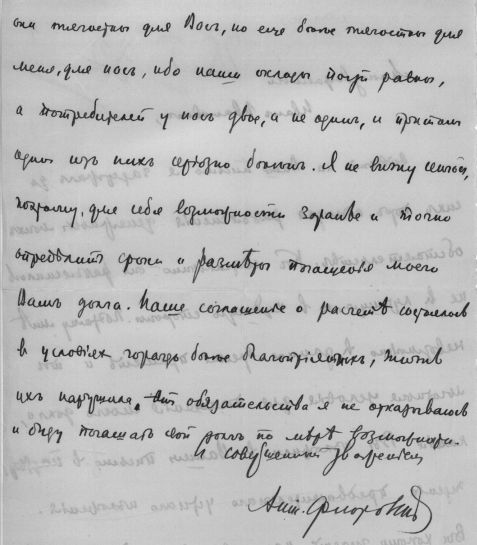 они тягостны для Васъ, но еще более тягостны для
меня, для насъ, ибо наши оклады почти равны,
а потребителей у насъ двое, а не одинъ, и притомъ
одинъ изъ нихъ серьезно боленъ. Я не вижу сейчасъ,
поэтому, для себя возможности заранѣе и точно
опредѣлить сроки и размѣры погашенья моего
Вамъ долга. Наше соглашение о расчетѣ состоялось
в условіях гораздо более благопріятныхъ, жизнь
ихъ нарушила. От обязательства я не отказываюсь
и буду погашать свой долгъ по мѣрѣ возможности.
С совершенным уважением
Ант. Флоровский